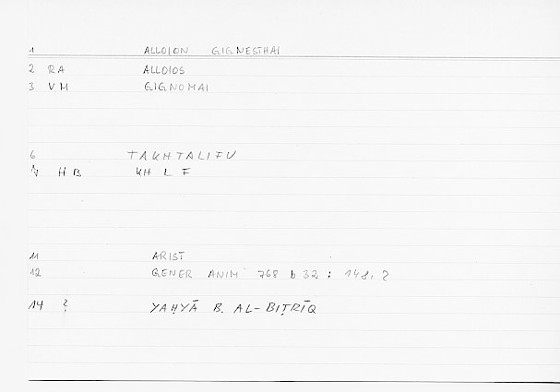 1 ALLOION GIGNESTHAI
2 RA ALLOIOS
3 VM GIGNOMAI
6 TAKHTALIFU
HB KH L F
11 ARIST
12 GENER ANIM 768 b 32 : 148, 2
14 ? YAḤYĀ B. AL-BIṬRĪQ